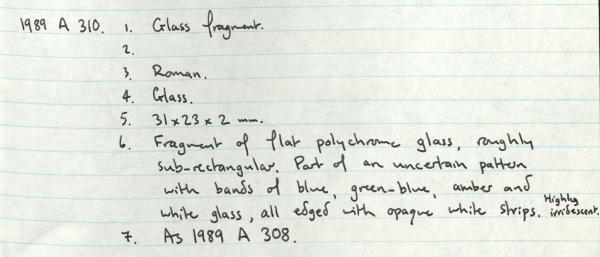 1989 A 310. 1. Glass fragment.
2.
3. Roman.
4. Glass.
5. 31 x 23 x 2 mm.
6. Fragment of flat polychrome glass, roughly
sub-rectangular. Part of an uncertain pattern
with bands of blue, green-blue, amber and
white glass, all edged with opaque white strips. Highly irridescent.
7. As 1989 A 308.